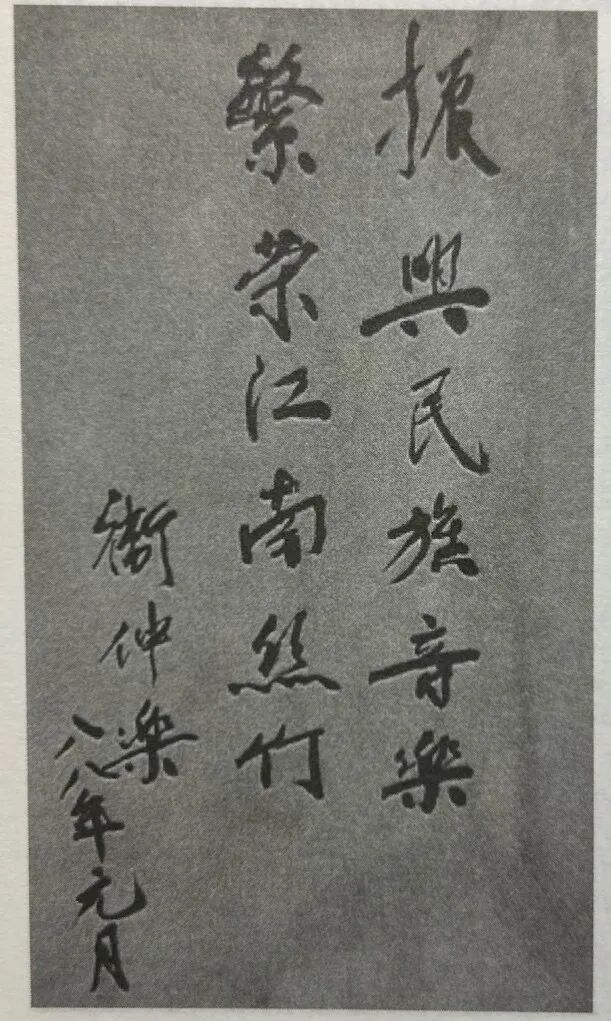 振興民族音樂
繁荣江南丝竹
衛仲樂
八八年元月